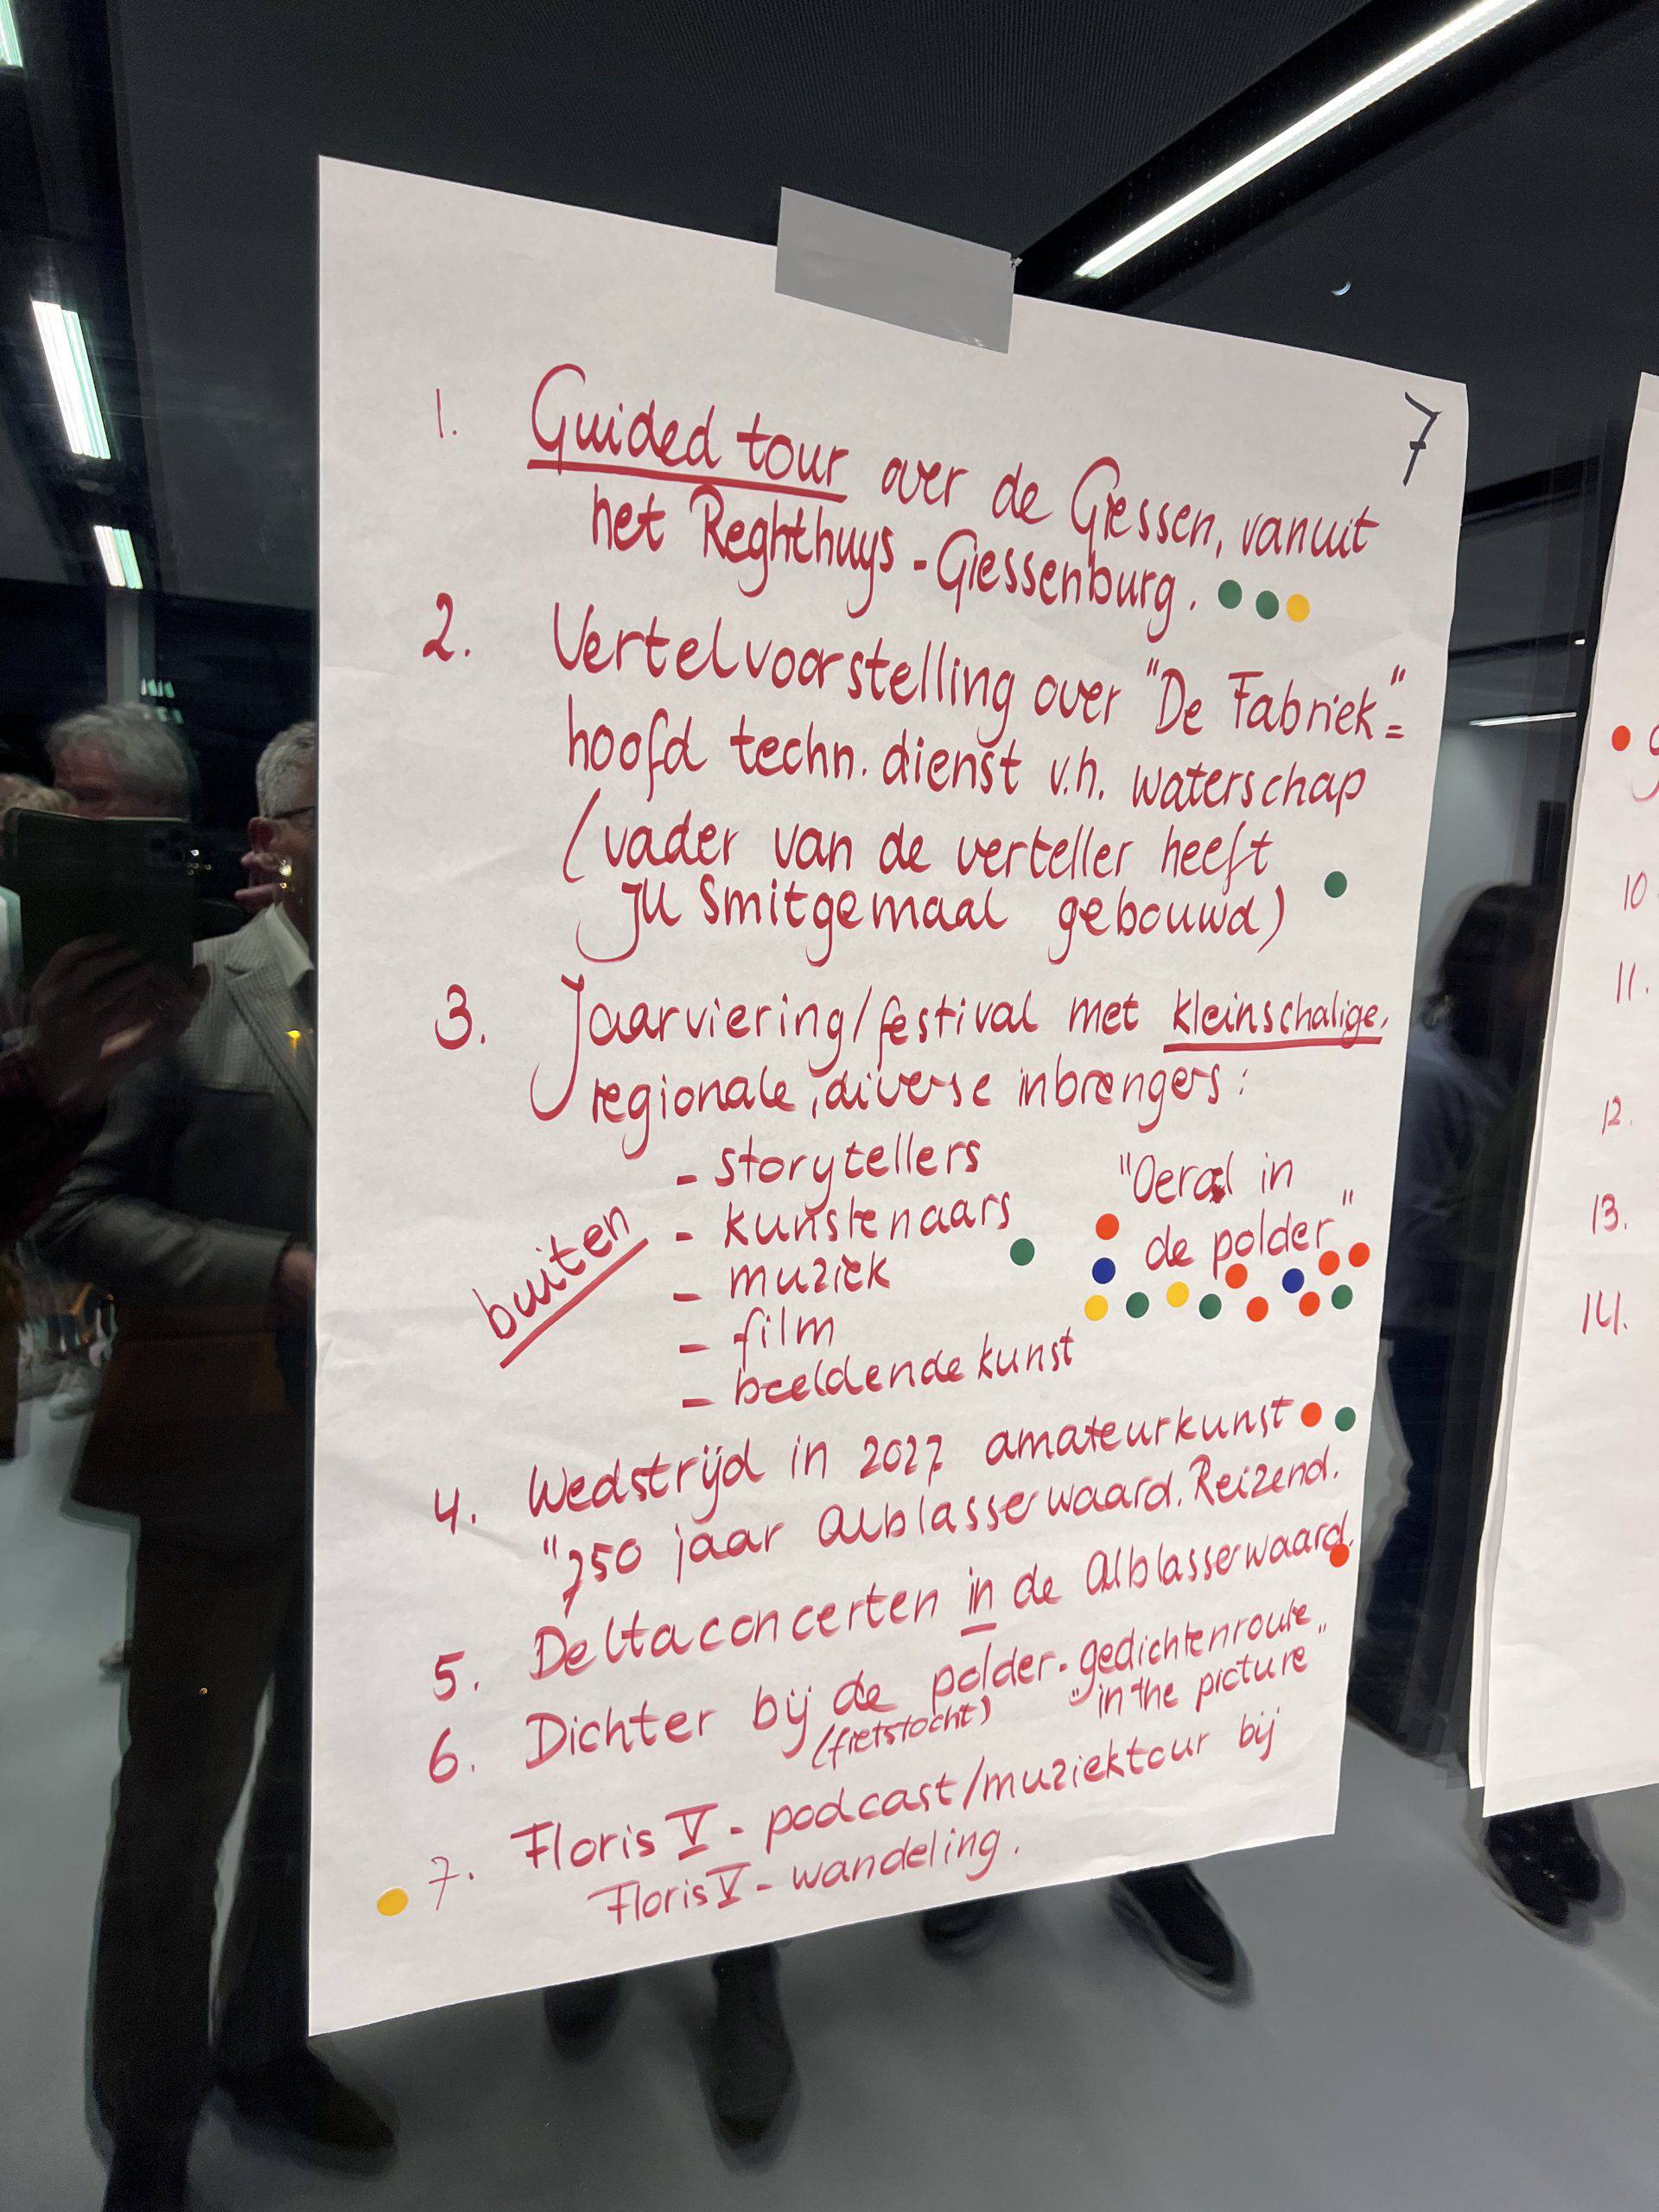 7
1. Guided tour over de Giessen, vanuit
het Reghthuys - Giessenburg.
2. Vertelvoorstelling over "De Fabriek" =
hoofd techn. dienst v.h. waterschap
(vader van de verteller heeft
JU Smitgemaal gebouwd)
3. Jaarviering/festival met kleinschalige,
regionale, diverse inbrengers:
- storytellers
- kunstenaars
- muziek
- film
- beeldende kunst
buiten
"Oeral in
de polder"
4. Wedstrijd in 2027 amateurkunst
"750 jaar Alblasserwaard. Reizend.
5. Deltaconcerten in de Alblasserwaard.
6. Dichter bij de polder - gedichtenroute
(fietstocht) "in the picture"
7. Floris V - podcast/muziektour bij
Floris V - wandeling.
10
11.
12.
13.
14.